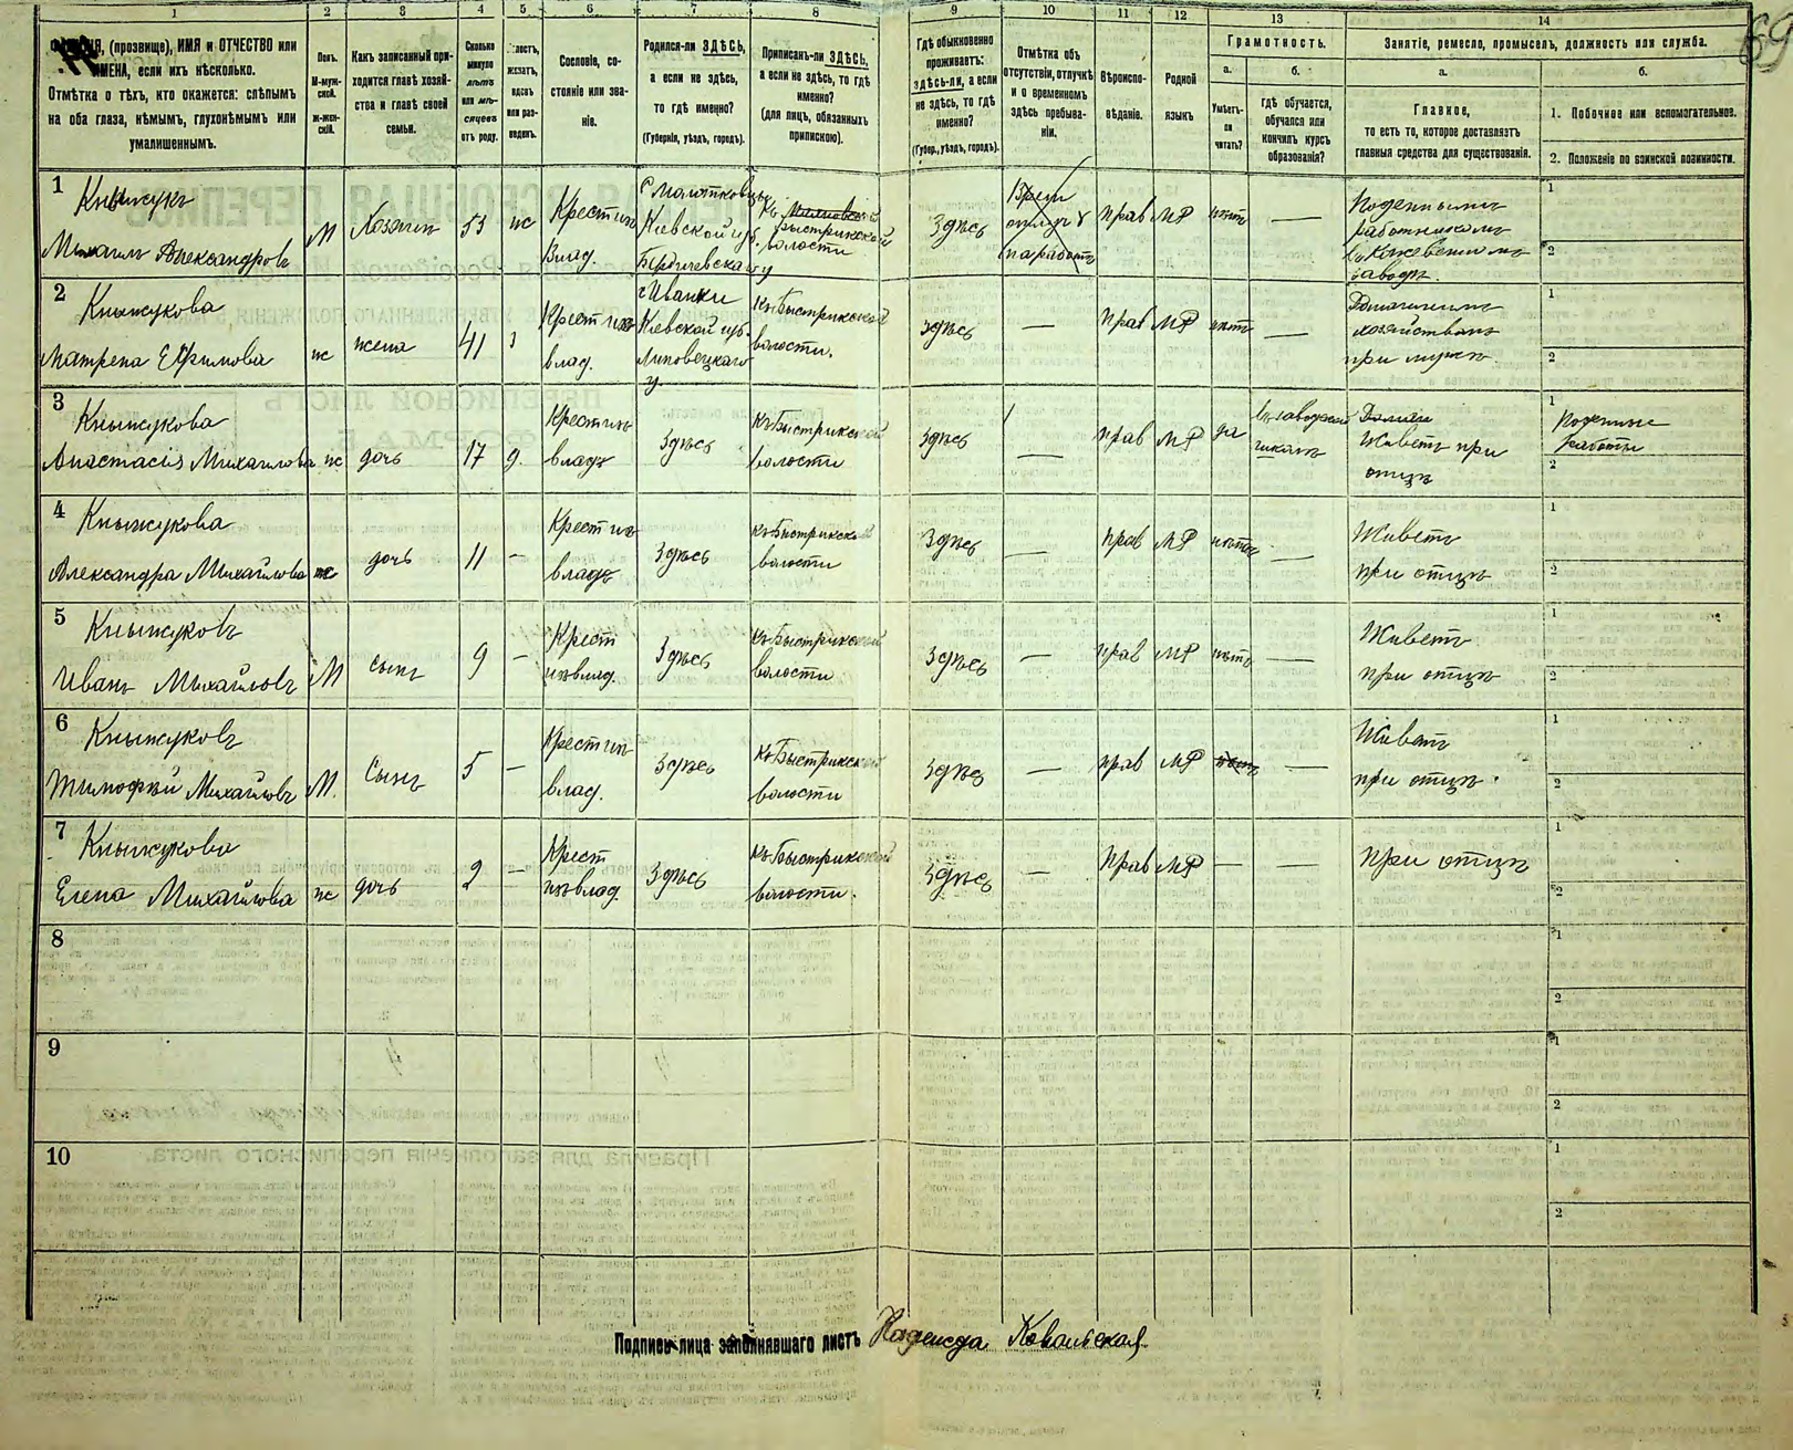 1 2 3 4 5 6 7 8 9 10 11 12 13 14
69
ФАМИЛІЯ, (прозвище), ИМЯ и ОТЧЕСТВО или
ИМЕНА, если ихъ нѣсколько.
Отмѣтка о тѣхъ, кто окажется: слѣпымъ
на оба глаза, нѣмымъ, глухонѣмымъ или
умалишеннымъ.
Полъ.
М-муж-
ской.
ж-жен-
скій.
Какъ записанный при-
ходится главѣ хозяй-
ства и главѣ своей
семьи.
Сколько
минуло
лѣтъ
или мѣ-
сяцевъ
отъ роду.
Холостъ,
женатъ,
вдовъ
или раз-
веденъ.
Сословіе, со-
стояніе или зва-
ніе.
Родился-ли ЗДѢСЬ,
а если не здѣсь,
то гдѣ именно?
(Губернія, уѣздъ, городъ).
Приписанъ-ли ЗДѢСЬ,
а если не здѣсь, то гдѣ
именно?
(для лицъ, обязанныхъ
припискою).
Гдѣ обыкновенно
проживаетъ:
здѣсь-ли, а если
не здѣсь, то гдѣ
именно?
(Губер., уѣздъ, городъ).
Отмѣтка объ
отсутствіи, отлучкѣ
и о временномъ
здѣсь пребыва-
ніи.
Вѣроиспо-
вѣданіе.
Родной
языкъ
Грамотность.
а.
Умѣетъ-
ли
читать?
б.
Гдѣ обучается,
обучался или
кончилъ курсъ
образованія?
Занятіе, ремесло, промыселъ, должность или служба.
а.
Главное,
то есть то, которое доставляетъ
главныя средства для существованія.
б.
1. Побочное или вспомогательное.
2. Положеніе по воинской повинности.
1
Михаилъ Александровъ
М
Хозяинъ
53
ж
Крестин
Влад.
Кіевской губ.
Бердичевскаго у
Быстрикской
волости
Здѣсь
прав
МР
нѣтъ
—
Поденнымъ
работникомъ
заводѣ.
2
Кныжукова
Матрена Ефимова
ж
жена
41
з
Крестин
влад.
Кіевской губ.
Липовецкаго
у.
Къ Быстрикской
волости.
здѣсь
—
прав
МР
нѣтъ
—
при мужѣ
3
Кныжукова
Анастасія Михаилова
ж
дочь
17
д.
Крестин
влад
Здѣсь
Къ Быстрикской
волости
Здѣсь
—
прав
МР
да
Живетъ при
отцѣ
Поденные
работы
4
Кныжукова
Александра Михаилова
ж
дочь
11
—
Крестин
влад
Здѣсь
Къ Быстрикской
волости
Здѣсь
—
прав
МР
нѣтъ
—
Живетъ
при отцѣ
5
Кныжуковъ
Иванъ Михайловъ
М
сынъ
9
—
Крест
инвлад.
Здѣсь
Къ Быстрикской
волости
Здѣсь
—
прав
МР
нѣтъ
—
Живетъ
при отцѣ
6
Кныжуковъ
Тимофѣй Михайловъ
М.
Сынъ
5
—
Крестин
влад.
Здѣсь
Къ Быстрикской
волости
Здѣсь
—
прав
МР
нѣтъ
—
Живетъ
при отцѣ.
7
Кныжукова
Елена Михайлова
ж
дочь
2
—
Крест
инвлад.
Здѣсь
Къ Быстрикской
волости.
Здѣсь
—
Прав
МР
—
—
При отцѣ
8
9
10
Подпись лица заполнявшаго листъ Надежда Ковальская